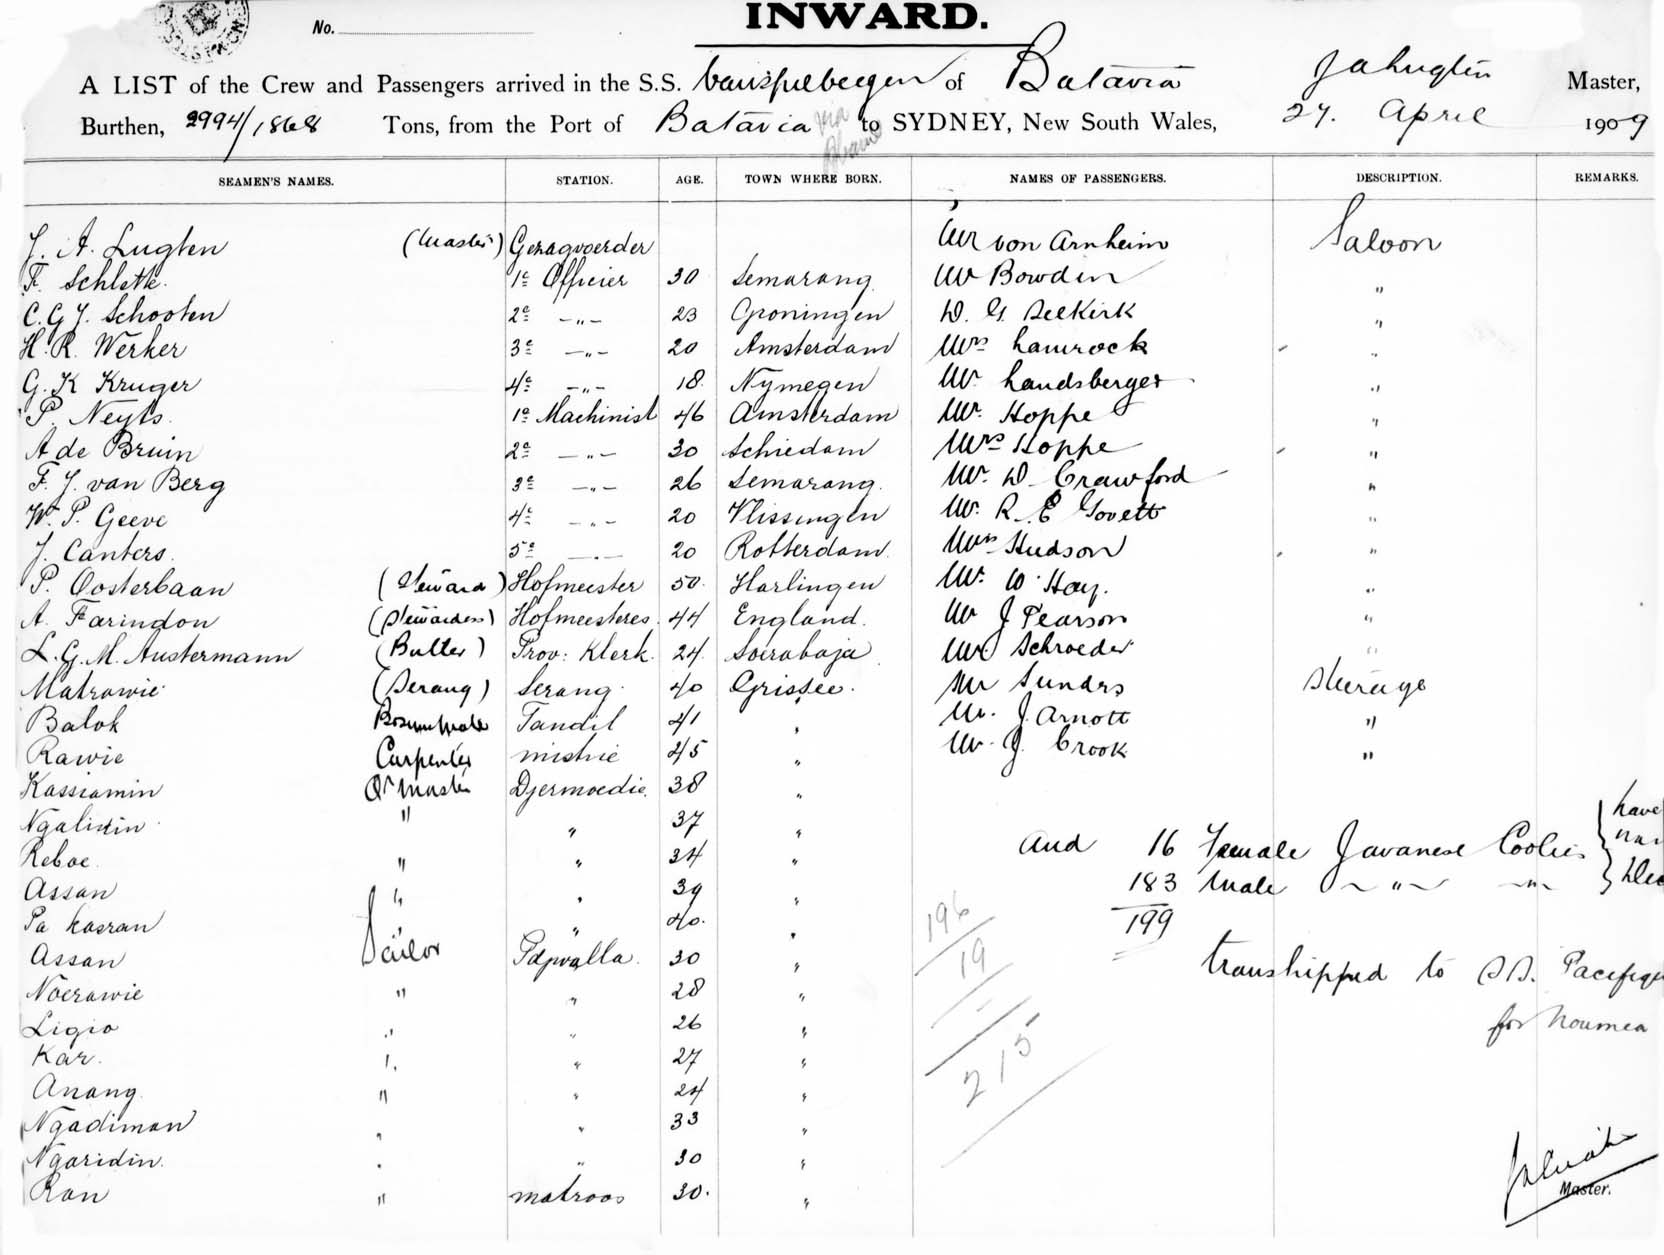 INWARD.
No.
A LIST of the Crew and Passengers arrived in the S.S. van Spilbergen of Batavia J A Lugten Master,
Burthen, 2994/1868 Tons, from the Port of Batavia via to SYDNEY, New South Wales, 27. April 1909
SEAMEN'S NAMES. STATION. AGE. TOWN WHERE BORN. NAMES OF PASSENGERS. DESCRIPTION. REMARKS.
J. A. Lugten (Master) Gezagvoerder Mr von Arnheim Saloon
F. Schlette. 1e Officier 30 Semarang. Mr Bowden "
C. G. J. Schooten 2e —„— 23 Groningen D. G. Selkirk "
H. R. Werker 3e —„— 20 Amsterdam Mrs Lamrock "
G. K Kruger 4e —„— 18. Nymegen Mr. Landsberger "
P. Neyts. 1e Machinist 46 Amsterdam Mr. Hoppe "
A de Bruin 2e —„— 30 Schiedam Mrs Hoppe "
F. J. van Berg 3e —„— 26 Semarang. Mr. D. Crawford "
W. P. Geeve 4e —„— 20 Vlissingen Mr. R. E Govett "
J. Canters. 5e —„— 20 Rotterdam. Mrs Hudson "
P. Oosterbaan (Steward) Hofmeester 50. Harlingen Mr. W. Hay. "
A. Farindon (Stewardess) Hofmeesteres. 44 England. Mr J Pearson "
L. G. M. Austermann (Butler) Prov: Klerk. 24. Soerabaja Mr Schroeder "
Matrawie (Serang) Serang. 40 Grissee. Mr Sunders Steerage
Balok Bosunmate Tandil 41 " Mr. J. Arnott "
Rawie Carpenter mistrie 45 " Mr. J. Crook "
Kassiamin Qr Master Djermoedie. 38 "
Ngalimin " " 37 "
Reboe " " 34 " and 16 Female Javanese Coolies } have
Assan " " 39 " 183 Male —„— —„—
Pa kasran " " 40. " 199
196
Assan Sailor Pdjwalla. 30 "
19
transhipped to S.S. Pacifique
Noerawie " " 28 "
for Noumea
Ligio " " 26 "
Kar. " " 27 "
215
Anang. " " 24 "
Ngadiman " " 33 "
Ngaridin. " " 30 "
Ran " matroos 30. "
Master.